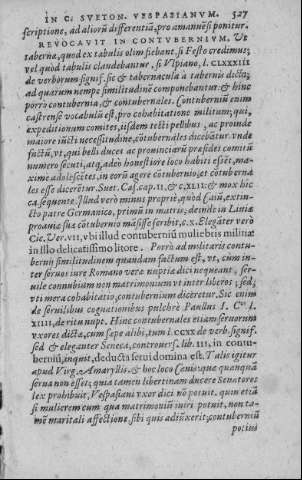 IN C. SVETON. VESPASIANVM. 527
scriptione, ad aliorū differentiā, pro amanuēsi ponitur.
REVOCAVIT IN CONTVBERNIVM. Vt
taberna, quod ex tabulis olim fiebant, si Festo credimus;
vel quod tabulis claudebantur, si Vlpiano, l. CLXXXIII
de verborum signif. sic & tabernacula à tabernis dicta;
ad quarum nempe similitudinē componebantur: & hinc
porrò contubernia, & contubernales. Contubernii enim
castrense vocabulū est, pro cohabitatione militum; qui,
expeditionum comites, iisdem tecti pellibus, ac proinde
maiore iūcti necessitudine, cōtubernales dicebātur. vnde
factū, vt, qui belli duces ac prouinciarū præsides comitū
numero secuti, atq, adeò honestiore loco habiti essēt, ma-
xime adolescētes, in eorū agere cōtubernio, et cōtuberna
les esse dicerētur. Suet. Caes. cap. II, & c. XLII: & mox hic
ca. sequente. Illud verò minus propriè, quòd Caiū, extin-
cto patre Germanico, primū in matris, deinde in Liuiæ
proauiæ suæ cōtubernio māsisse scribit, c. x. Elegāter verò
Cic. Ver. VII, vbi illud contuberniū muliebris militiæ
in illo delicatissimo litore. Porrò ad militaris contu-
bernij similitudinem quandam factum est, vt, cum in-
ter seruos iure Romano veræ nuptiæ dici nequeant, ser-
uile connubium non matrimonium vt inter liberos, sed,
vti mera cohabitatio, contubernium diceretur. Sic enim
de seruilibus cognationibus pulchrè Paullus I. Cͭ l.
XIIII, de ritu nupt. Hinc contubernales etiam seruorum
vxores dictæ, cum sæpe aliàs, tum l. CCXX de verb. signif.
sed & eleganter Seneca, controuers. lib. III, in contu-
berniū, inquit, deducta serui domina est. Talis igitur
apud Virg. Amaryllis. & hoc loco Cænis; quæ quanquā
serua non esset; quia tamen libertinam ducere Senatores
lex prohibuit, Vespasiani vxor dici nō potuit. quin etiā
si mulierem cum qua matrimoniū iniri potuit, non ta-
mē maritali affectione, sibi quis adiūxerit, contuberniū
potius